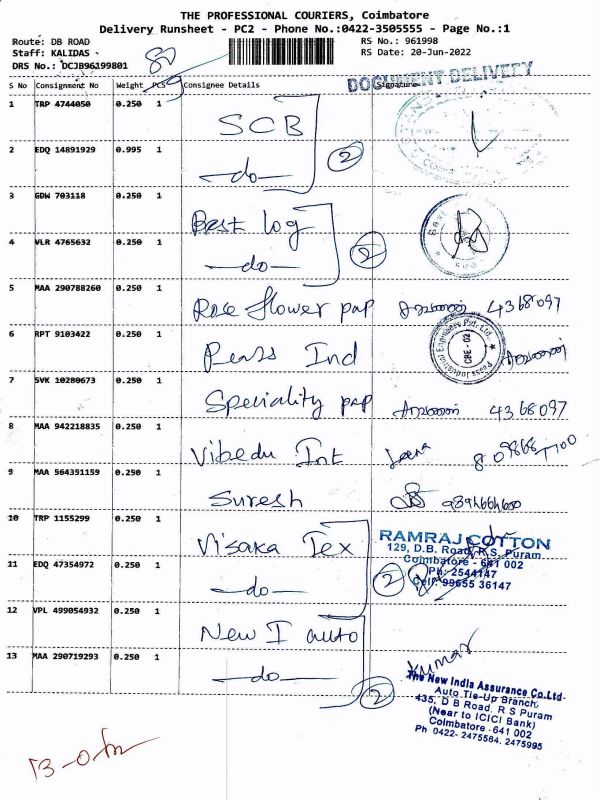 THE PROFESSIONAL COURIERS, Coimbatore
Delivery Runsheet - PC2 - Phone No.:0422-3505555 - Page No.:1
Route: DB ROAD
RS No.: 961998
Staff: KALIDAS
RS Date: 20-Jun-2022
DRS No.: DCJB96199801
DOCUMENT DELIVERY
S No Consignment No Weight PCS Consignee Details Signature
1 TRP 4744050 0.250 1 SCB
2 EDQ 14891929 0.995 1 —do— 2
3 GDW 703118 0.250 1 Best log
4 VLR 4765632 0.250 1 —do— 2
5 MAA 290788260 0.250 1 Rose flower pap சரவணன் 4368097
6 RPT 9103422 0.250 1 Peass Ind சரவணன்
Peass Industrial Engineers Pvt. Ltd.
CBE - 02
7 SVK 10280673 0.250 1 Speciality pap சரவணன் 4368097
8 MAA 942218835 0.250 1 Vibedu Int
9 MAA 564351159 0.250 1 Suresh
10 TRP 1155299 0.250 1 Visaka Tex
RAMRAJ COTTON
129, D.B. Road, R.S. Puram
Coimbatore - 641 002
Ph: 2544147
Cell: 99655 36147
11 EDQ 47354972 0.250 1 —do— 2
12 VPL 499054932 0.250 1 New I auto
13 MAA 290719293 0.250 1 —do— 2
Kumar
The New India Assurance Co.Ltd
Auto Tie-Up Branch
435, D B Road, R S Puram
(Near to ICICI Bank)
Coimbatore - 641 002
Ph 0422- 2475564, 2475995